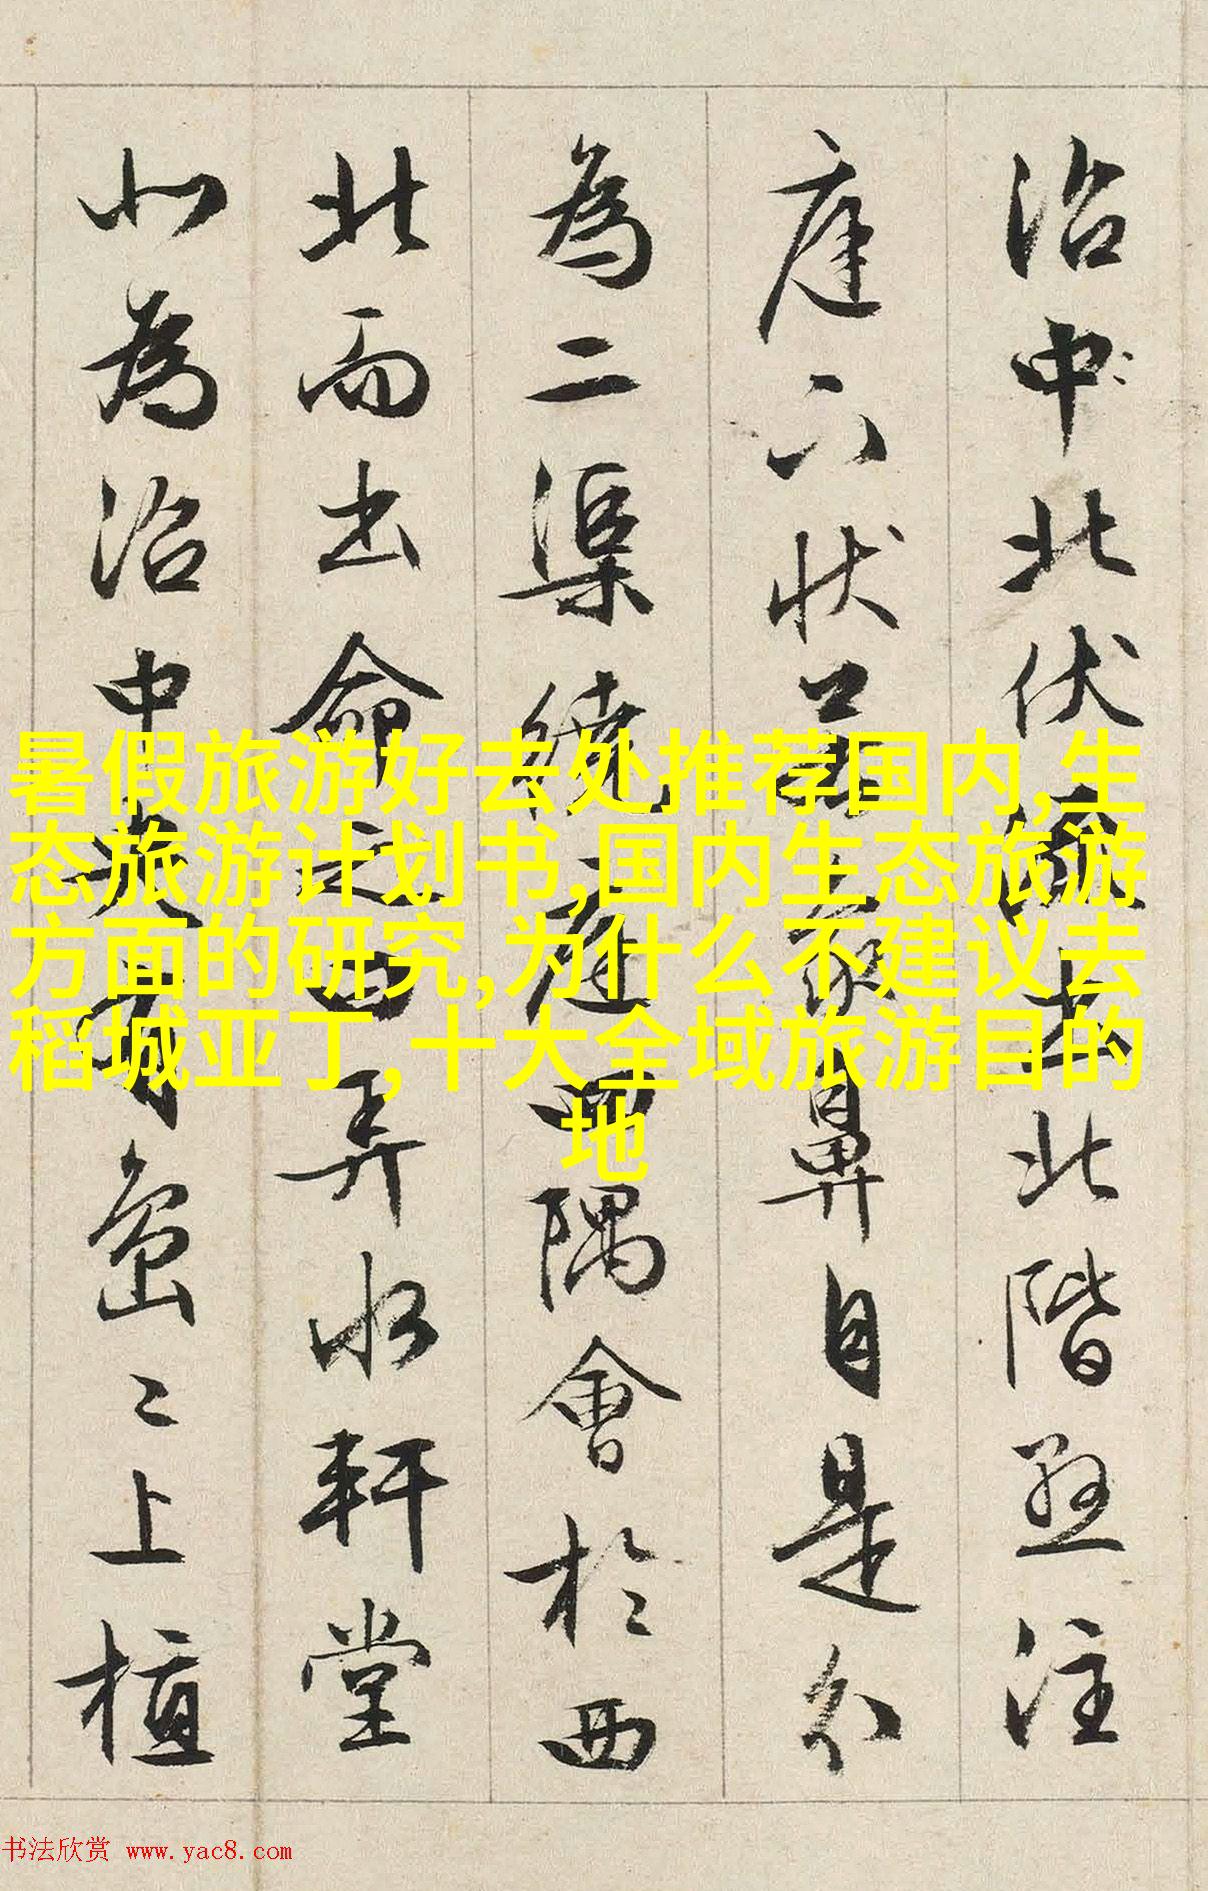 沼中北伏流出北階懸注
庭下状若象鼻自是分
為二渠繞庭四隅會於西
北而出命之曰弄水軒堂
北為沼中央有島〻上植
暑假旅游好去处推荐国内,生
态旅游计划书,国内生态旅游
方面的研究,为什么不建议去
稻城亚丁,十大全域旅游目的
地
书法欣赏 www.yac8.com